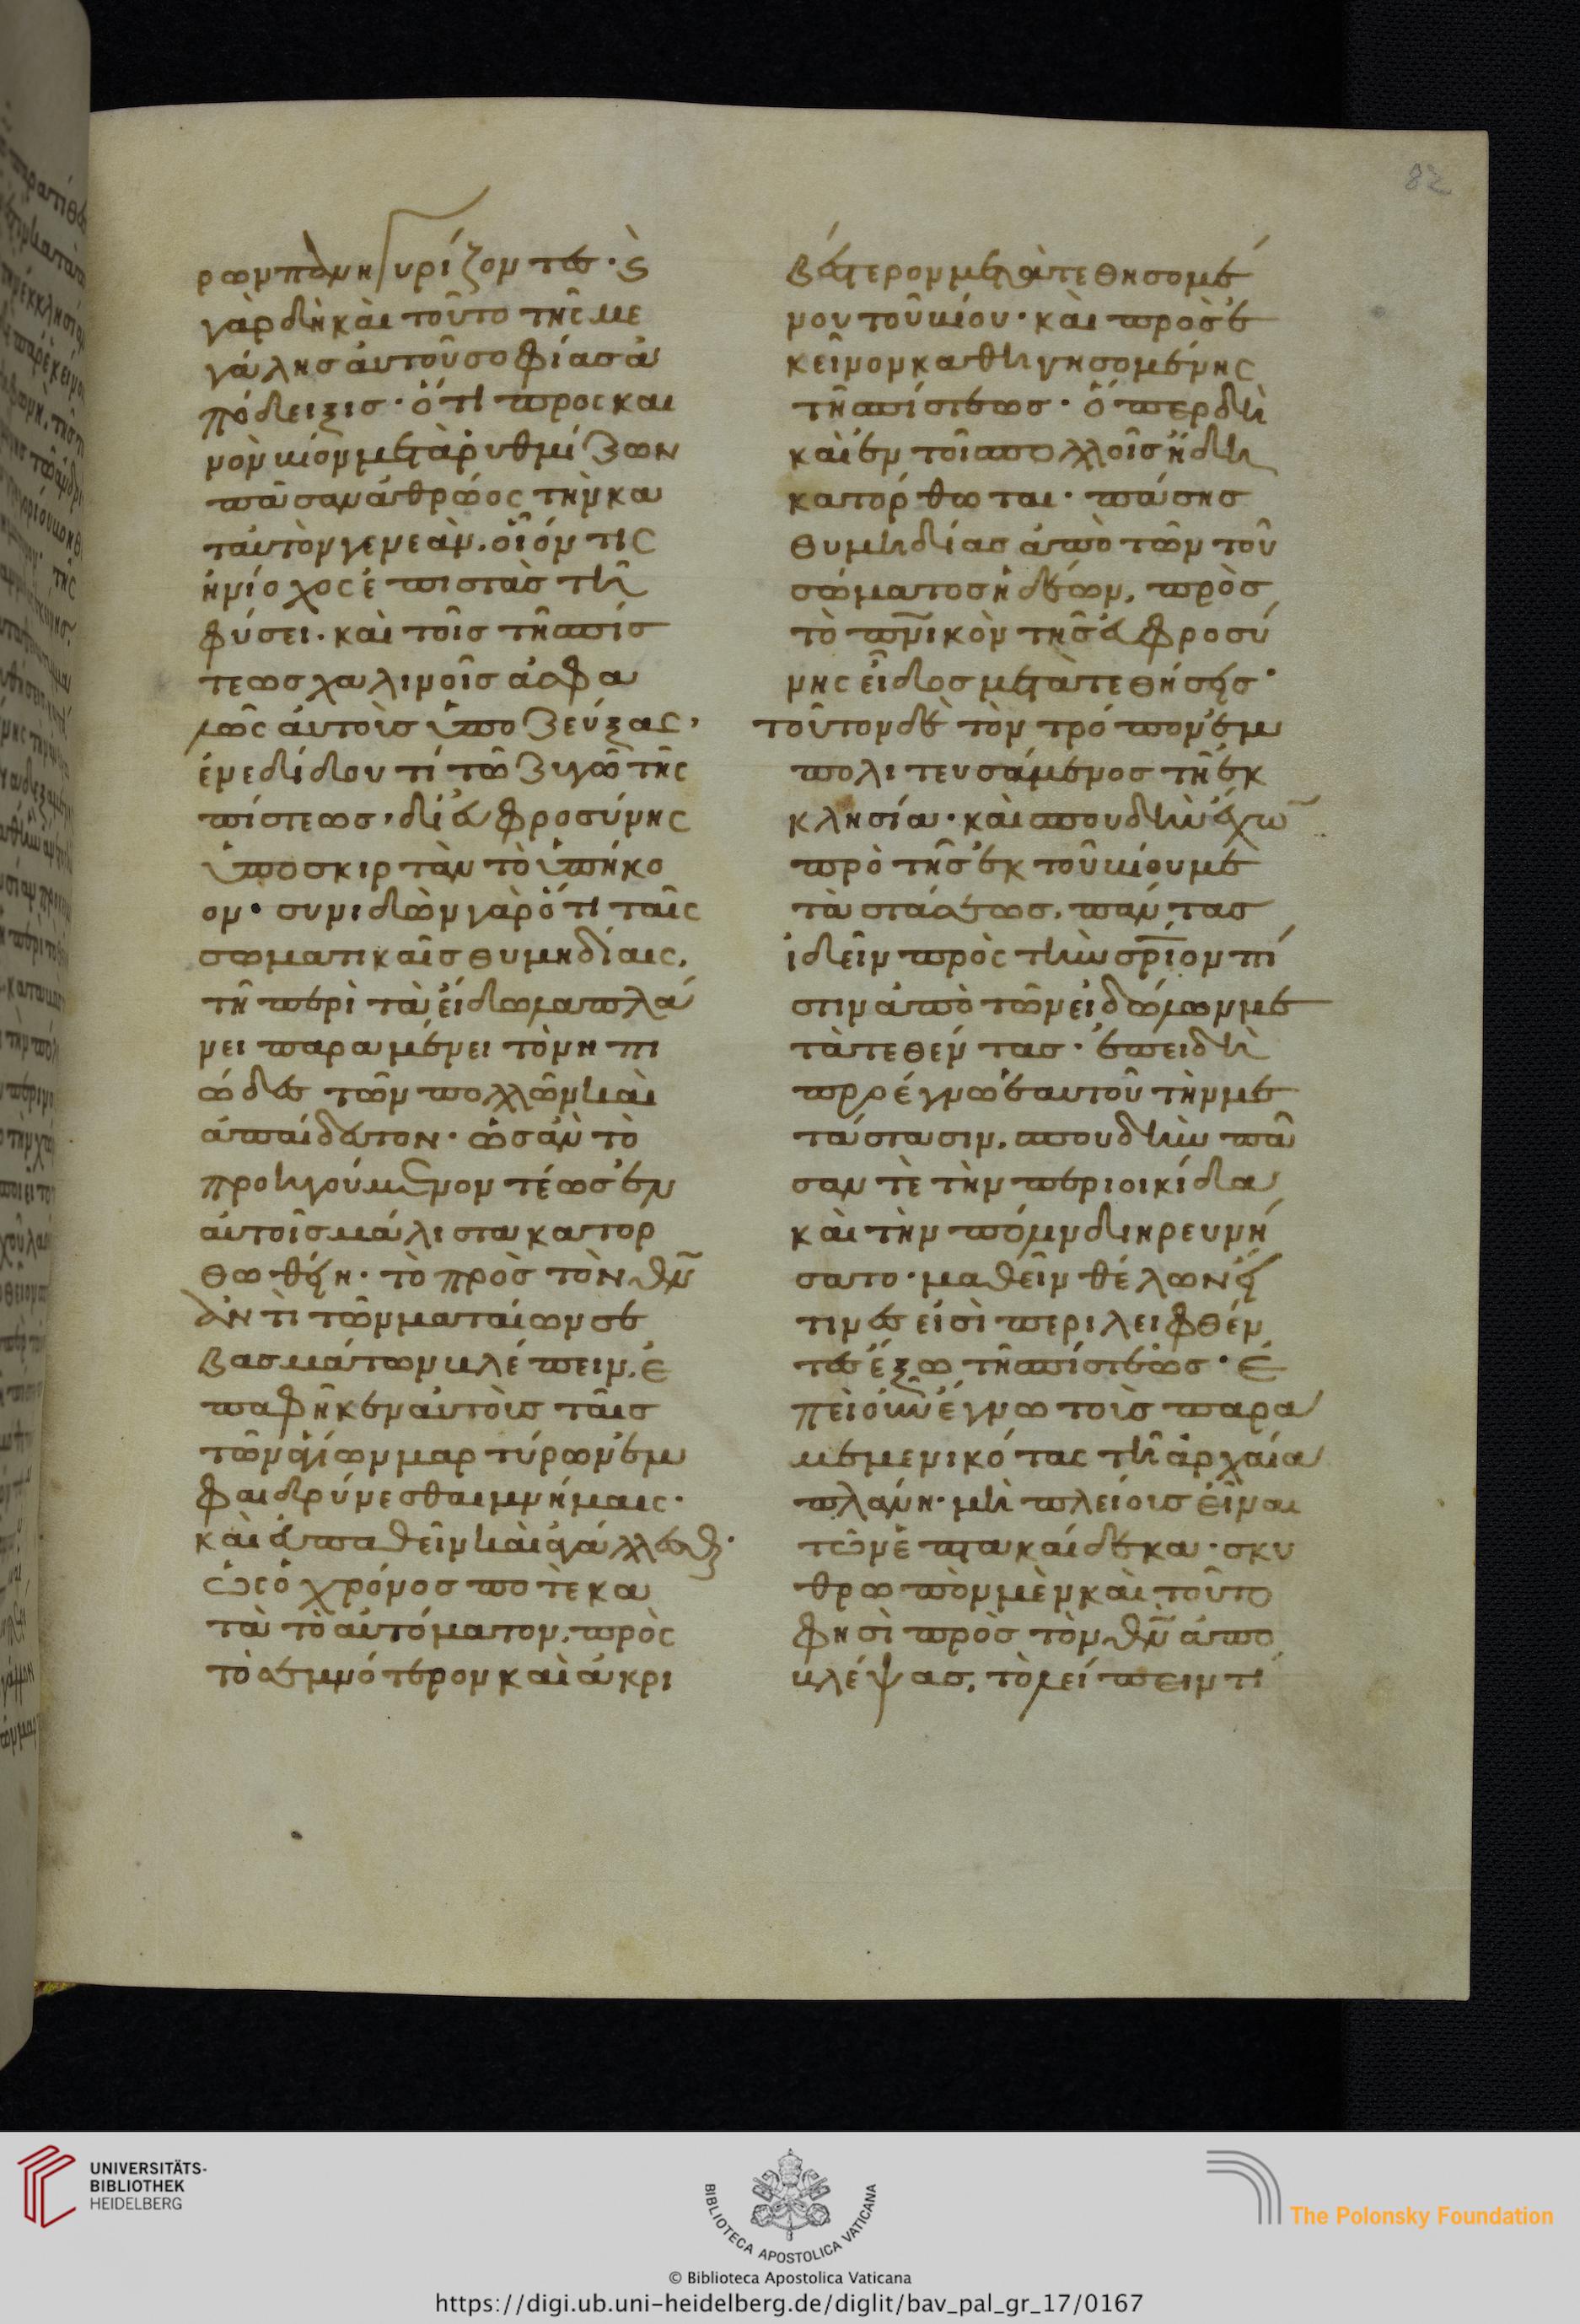 82
ρων πανηγυρίζοντες· ἦν
γὰρ δὴ καὶ τοῦτο τῆς με
γάλης αὐτοῦ σοφίας ἀ
πόδειξις· ὅτι προς και
νὸν βίον μεταρυθμίζων
πᾶσαν ἀθρόως τὴν κα
ταυτὸν γενεὰν, οἷόν τις
ἡνίοχος ἐπιστὰς τῆ
φύσει· καὶ τοῖς τῆς πίσ
τεως χαλινοῖς ἀσφα
λῶς αὐτοὺς ὑποζεύξας,
ἐνεδίδου τί τῶ ζυγῶ τῆς
πίστεως, δι εὐφροσύνης
ὑποσκιρτᾶν τὸ ὑπήκο
ον· συνιδὼν γὰρ ὅτι ταῖς
σωματικαῖς θυμηδίαις,
τῆ περὶ τὰ εἴδωλα πλά
νει παραμένει τὸ νηπι
ῶδες τῶν πολλῶν καὶ
ἀπαίδευτον· ὡς ἂν τὸ
προηγούμενον τέως ἐν
αὐτοῖς μάλιστα κατορ
θωθείη· τὸ πρὸς τὸν θν
ἀντὶ τῶν ματαίων σε
βασμάτων βλέπειν, ἐ
παφῆκεν αὐτοὺς ταῖς
τῶν ἁγίων μαρτύρων ἐμ
φαιδρύνεσθαι μνήμαις·
καὶ εὐπαθεῖν καὶ ἀγάλλεσθαι·
ὡς ὁ χρόνος ποτὲ κα
τὰ τὸ αὐτόματον, πρὸς
τὸ σεμνότερον καὶ ἀκρι
βέστερον μετατεθησομέ
νου τοῦ βίου· καὶ πρὸς ἐ
κεῖνον καθηγησομένης
τῆς πίστεως· ὅπερ δὴ
καὶ ἐν τοῖς πολλοῖς ἤδη
κατόρθωται· πάσης
θυμηδίας ἀπὸ τῶν τοῦ
σώματος ἡδέων, πρὸς
τὸ πνικὸν τῆς εὐφροσύ
νης εἶδος μετατεθήσης·
τοῦτον δὲ τὸν τρόπον ἐμ
πολιτευσάμενος τῆ ἐκ
κλησία· καὶ σπουδὴν ἔχων
πρὸ τῆς ἐκ τοῦ βίου με
ταστάσεως, πάντας
ἰδεῖν πρὸς τὴν σριον πί
στιν ἀπὸ τῶν εἰδώλων με
τατεθέντας· ἐπειδὴ
προέγνω ἑαυτοῦ τὴν με
τάστασιν, σπουδὴν πᾶ
σαν τὲ τὴν περιοικίδα
καὶ τὴν πόλιν διηρευνή
σατο· μαθεῖν θέλων εἴ
τινες εἰσὶ περιλειφθέν
τες ἔξω τῆς πίστεως· ἐ
πεὶ οὖν ἔγνω τοὺς παρα
μεμενικότας τῆ ἀρχαία
πλάνη· μὴ πλείους εἶναι
τῶν ἑπτακαίδεκα· σκυ
θρωπὸν μὲν καὶ τοῦτο
φησὶ πρὸς τὸν θν ἀπο
βλέψας, τὸ λείπειν τί
UNIVERSITÄTS-
BIBLIOTHEK
HEIDELBERG
BIBLIOTECA APOSTOLICA VATICANA
© Biblioteca Apostolica Vaticana
The Polonsky Foundation
https://digi.ub.uni-heidelberg.de/diglit/bav_pal_gr_17/0167